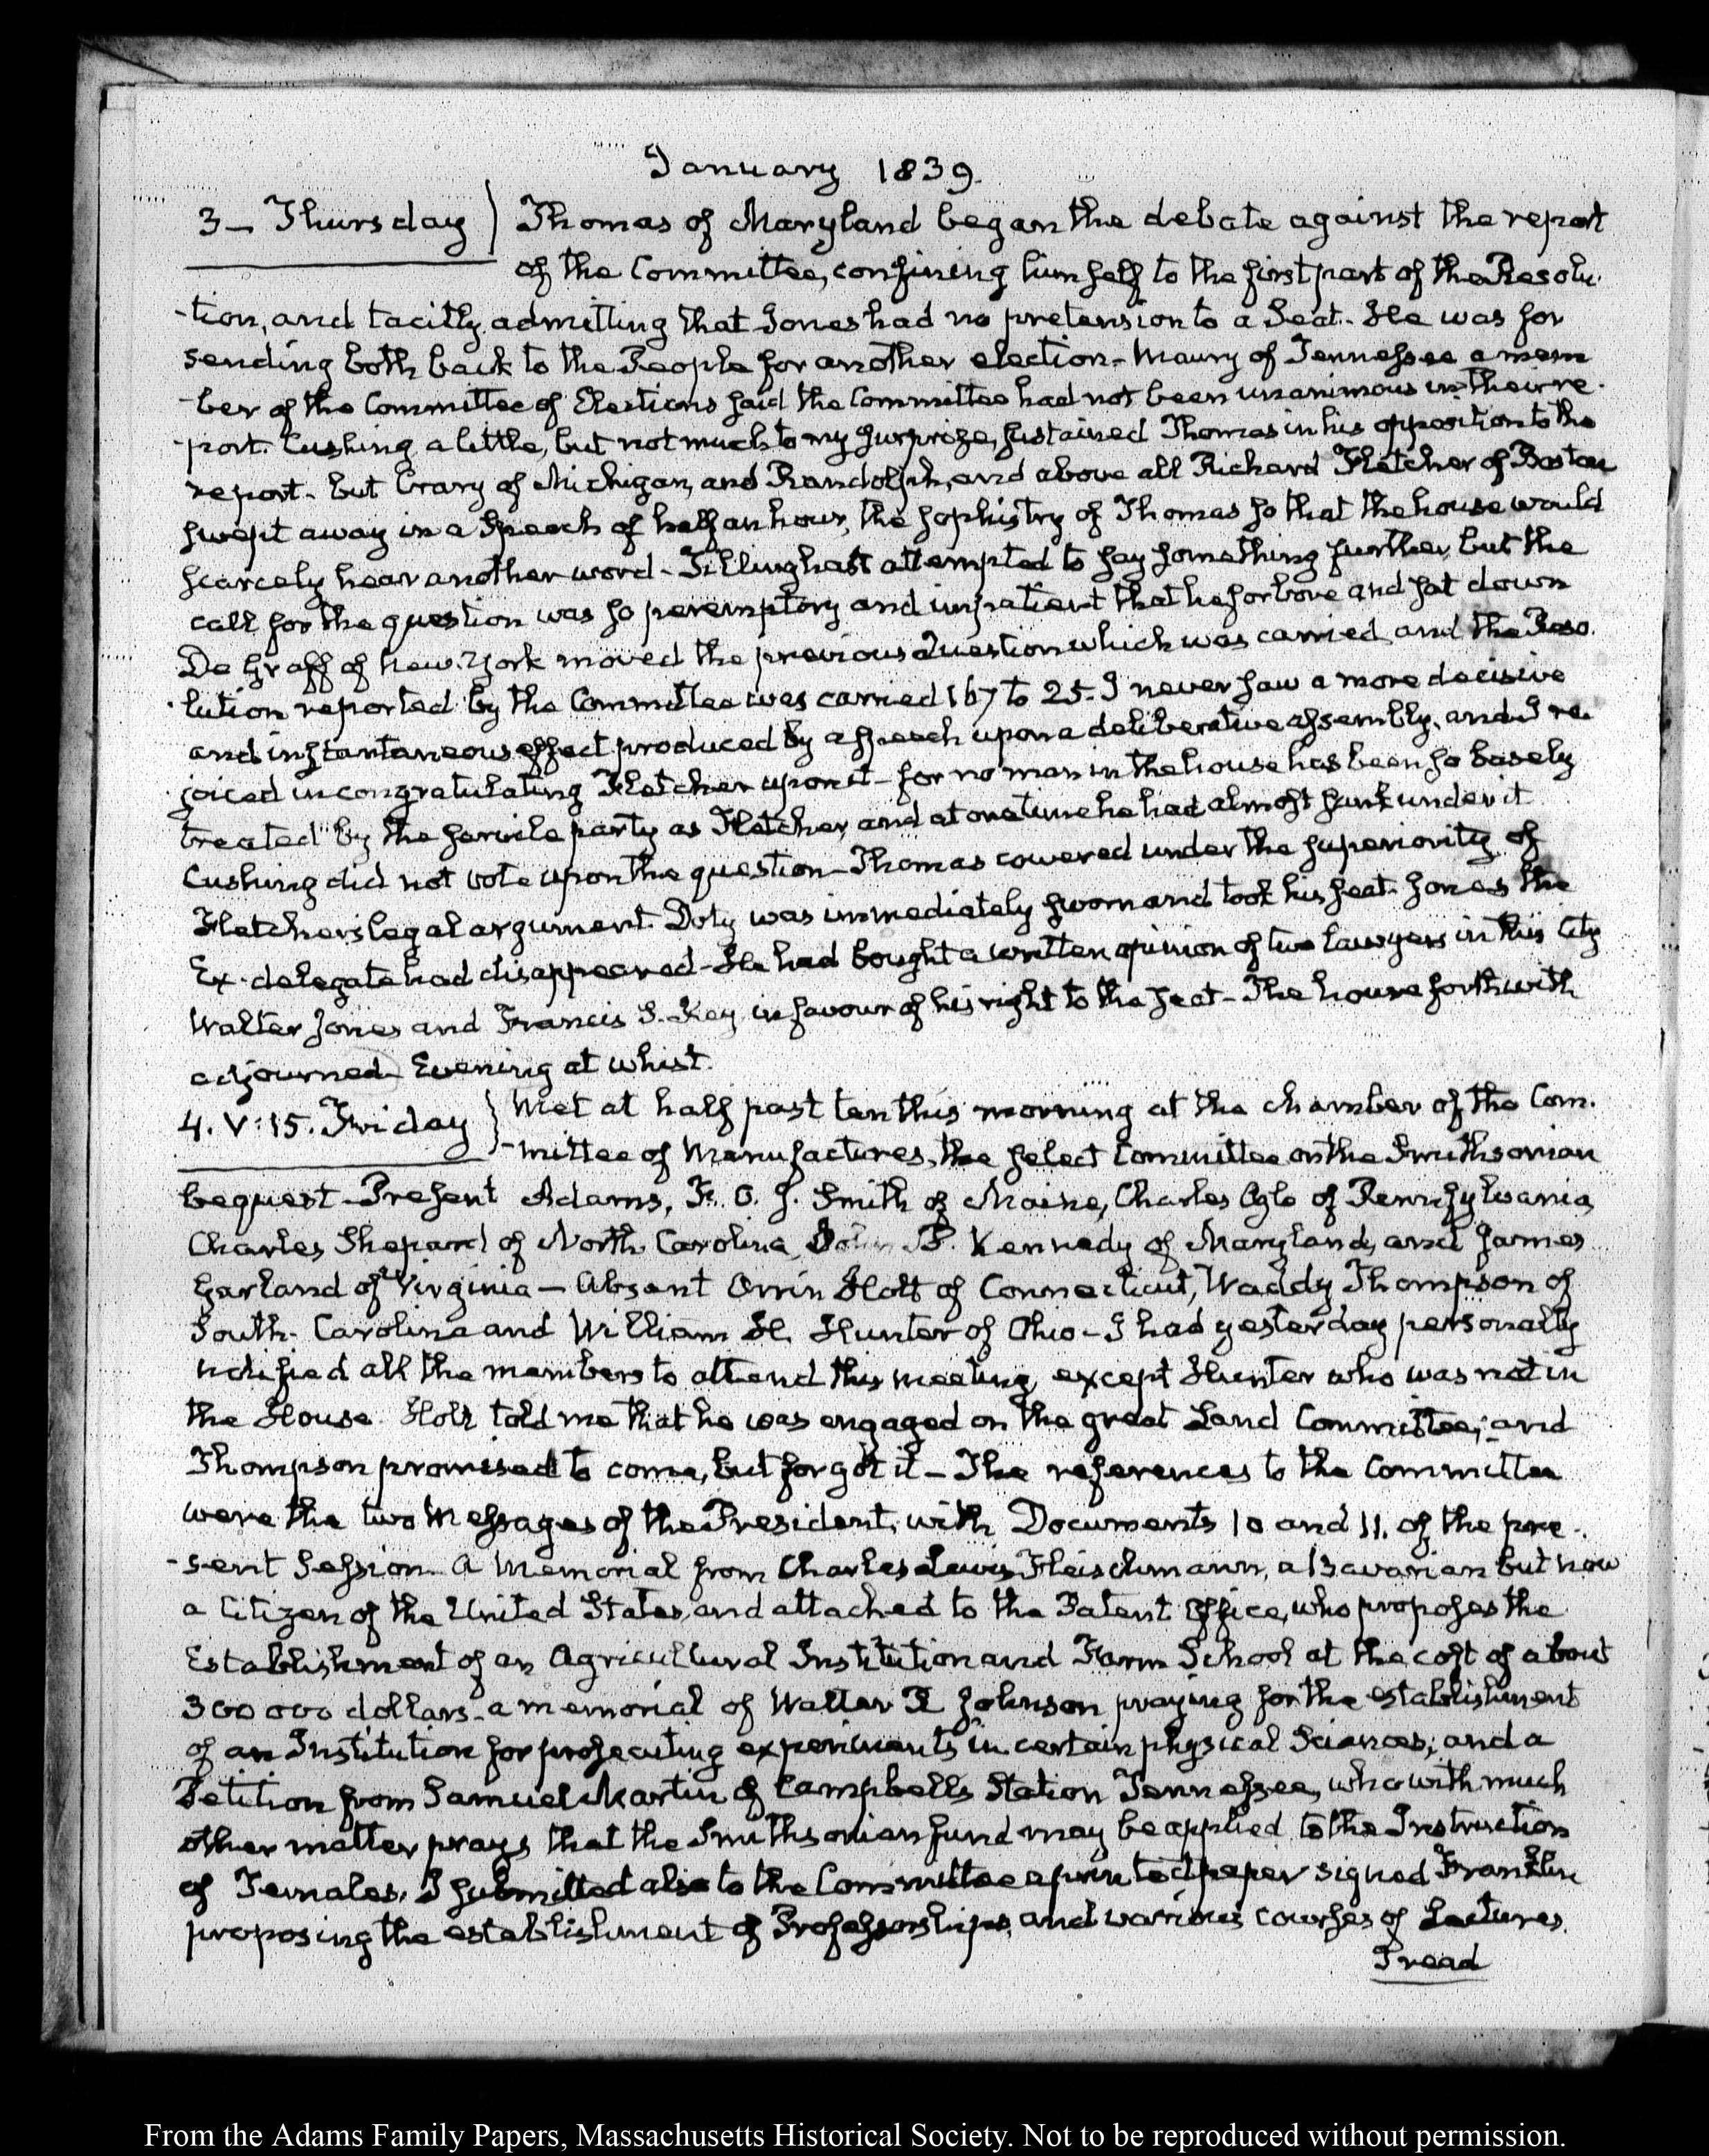 January 1839.
3 – Thursday) Thomas of Maryland began the debate against the report
of the Committee, confining himself to the first part of the Resolu-
-tion, and tacitly admitting that Jones had no pretension to a Seat. He was for
sending both back to the People for another election – Maury of Tennessee a mem
-ber of the Committee of Elections said the Committee had not been unanimous in their re-
-port. Cushing a little, but not much to my surprize, sustained Thomas in his opposition to the
report – but Crary of Michigan, and Randolph, and above all Richard Fletcher of Boston
swept away in a Speech of half an hour, the sophistry of Thomas so that the house would
scarcely hear another word – Tillinghast attempted to say something further, but the
call for the question was so peremptory and impatient that he forbore and sat down
De Graff of New-York moved the previous Question which was carried, and the Reso-
-lution reported by the Committee was carried 167 to 25. I never saw a more decisive
and instantaneous effect produced by a speech upon a deliberative assembly, and I re-
-joiced in congratulating Fletcher upon it – for no man in the house has been so basely
treated by the servile party as Fletcher, and at one time he had almost sunk under it
Cushing did not vote upon the question – Thomas cowered under the superiority of
Fletcher's legal argument. Doty was immediately sworn and took his seat. Jones the
Ex-delegate had disappeared – He had bought a written opinion of two Lawyers in this City
Walter Jones and Francis S. Key in favour of his right to the Seat – The house forthwith
adjourned – Evening at whist.
4. V:15. Friday } Met at half past ten this morning at the chamber of the Com-
-mittee of Manufactures, the select Committee on the Smithsonian
bequest – Present Adams, F. O. J. Smith of Maine, Charles Ogle of Pennsylvania,
Charles Shepard of North Carolina, John P. Kennedy of Maryland, and James
Garland of Virginia – Absent Orrin Holt of Connecticut, Waddy Thompson of
South-Carolina and William H. Hunter of Ohio – I had yesterday personally
notified all the members to attend this meeting, except Hunter who was not in
the House. Holt told me that he was engaged on the great Land Committee; and
Thompson promised to come, but forgot it – The references to the Committee
were the two Messages of the President, with Documents 10 and 11. of the pre-
-sent Session – A Memorial from Charles Lewis Fleischmann, a Bavarian but now
a Citizen of the United States, and attached to the Patent Office, who proposes the
Establishment of an Agricultural Institution and Farm School at the cost of about
300 000 dollars – a memorial of Walter R Johnson praying for the establishment
of an Institution for prosecuting experiments in certain physical Sciences; and a
Petition from Samuel Martin of Campbells Station Tennessee, who with much
other matter prays that the Smithsonian fund may be applied to the Instruction
of Females. I submitted also to the Committee a printed paper signed Franklin
proposing the establishment of Professorships, and various courses of Lectures.
I read
From the Adams Family Papers, Massachusetts Historical Society. Not to be reproduced without permission.